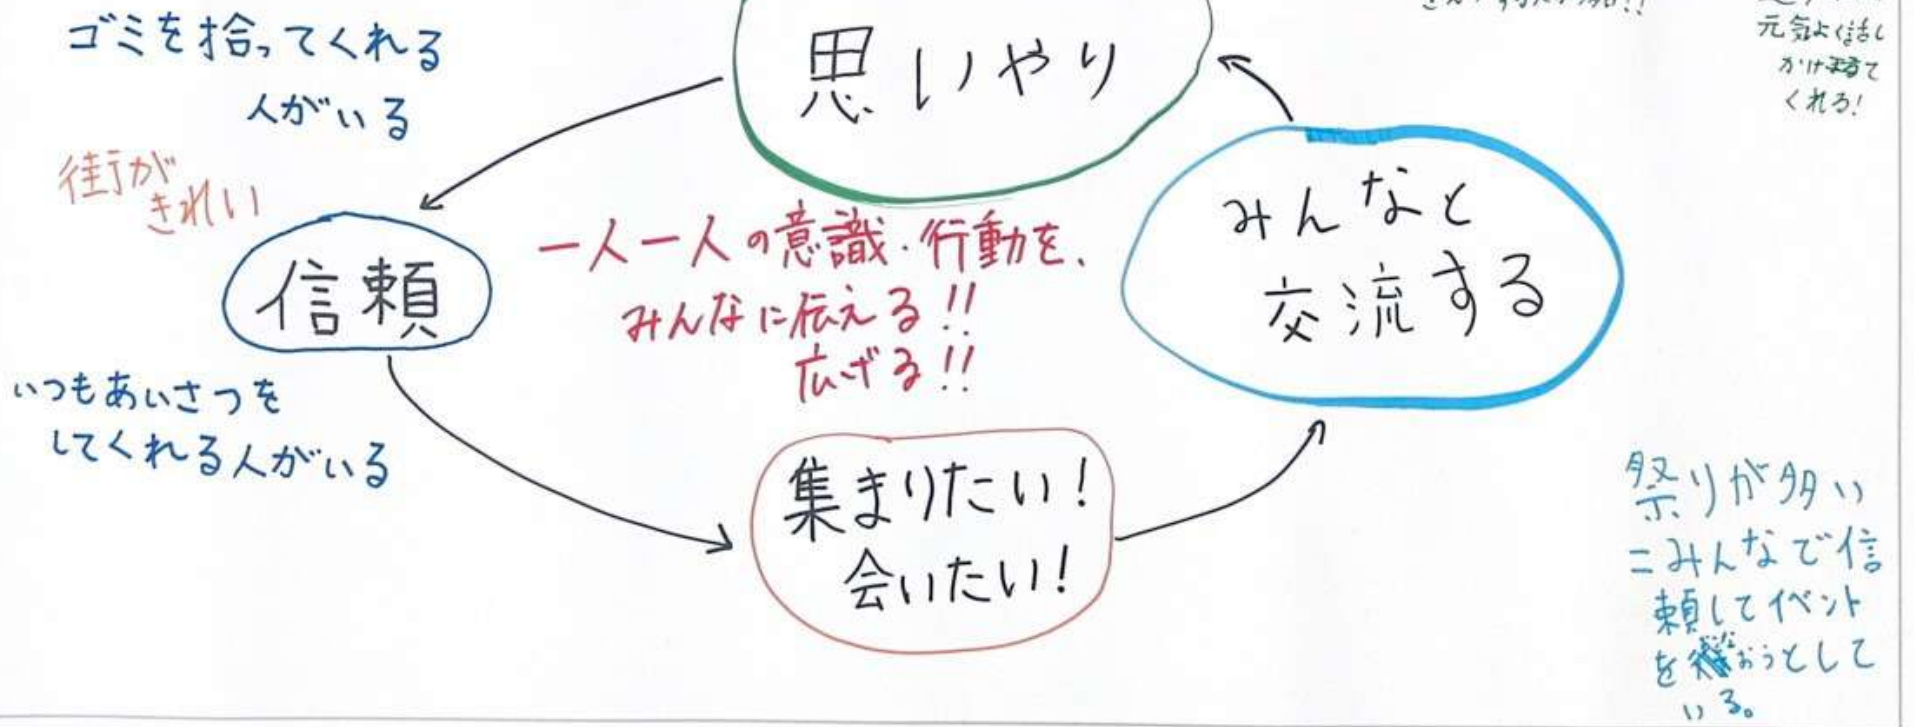 ゴミを拾ってくれる
人がいる
街が
きれい
思いやり
元気よく話し
かけて
くれる!
信頼
一人一人の意識・行動を、
みんなに伝える!!
広げる!!
みんなと
交流する
いつもあいさつを
してくれる人がいる
集まりたい!
会いたい!
祭りが多い
=みんなで信
頼してイベント
をおうとして
いる。